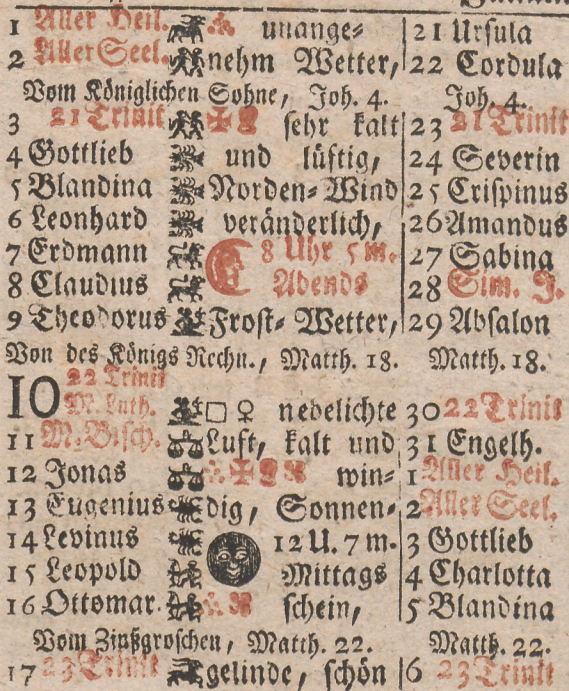 1 Aller Heil. unange- 21 Ursula
2 Aller Seel. nehm Wetter, 22 Cordula
Vom Königlichen Sohne, Joh. 4. Joh. 4.
3 21 Trinit sehr kalt 23 21 Trinit
4 Gottlieb und lüftig, 24 Severin
5 Blandina Norden-Wind 25 Crispinus
6 Leonhard veränderlich, 26 Amandus
7 Erdmann 8 Uhr 5 m. 27 Sabina
8 Claudius Abends 28 Sim. J.
9 Theodorus Frost-Wetter, 29 Absalon
Von des Königs Rechn., Matth. 18. Matth. 18.
22 Trinit
10 M. Luth. □ ♀ nebelichte 30 22 Trinit
11 M. Bisch. Luft, kalt und 31 Engelh.
12 Jonas win- 1 Aller Heil.
13 Eugenius dig, Sonnen- 2 Aller Seel.
14 Levinus 12 U. 7 m. 3 Gottlieb
15 Leopold Mittags 4 Charlotta
16 Ottomar. schein, 5 Blandina
Vom Zinßgroschen, Matth. 22. Matth. 22.
17 23 Trinit gelinde, schön 6 23 Trinit